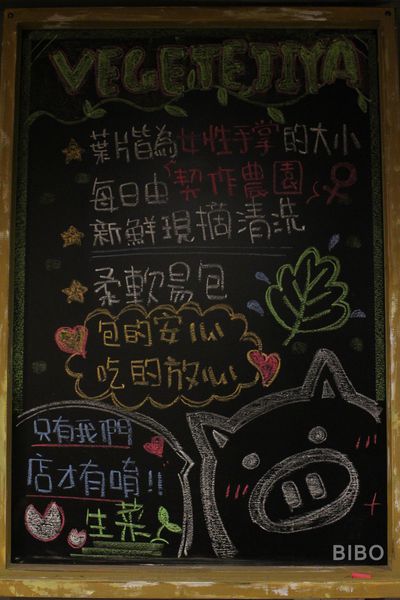 VEGETEJIYA
葉片皆為女性手掌的大小
每日由契作農園
新鮮現摘清洗
柔軟易包
包的安心
吃的放心
只有我們
店才有唷!!
生菜
BIBO